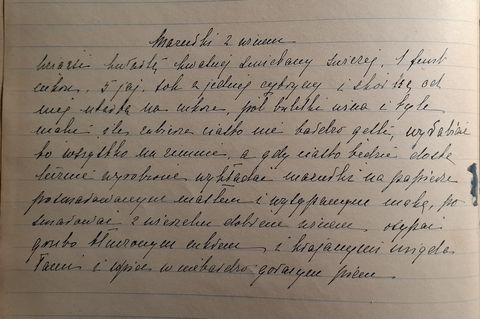 Mazurki z winem
kwaśnej śmietany świeżej, 1 funt
cukru, 5 jaj, sok z jednej cytryny i skórkę od
niej utartą na cukrze, pół butelki wina i tyle
mąki, ile zabierze ciasto nie bardzo gęste, wyrabiać
to wszystko na zimnie, a gdy ciasto będzie dosko
wyrobione wykładać mazurki na papierze
posmarowanym masłem i wysypanym mąką, po
smarować z wierzchu dobrem winem osypać
grubo tłuczonym cukrem i krajanymi migda
łami i w niebardzo gorącym piecu